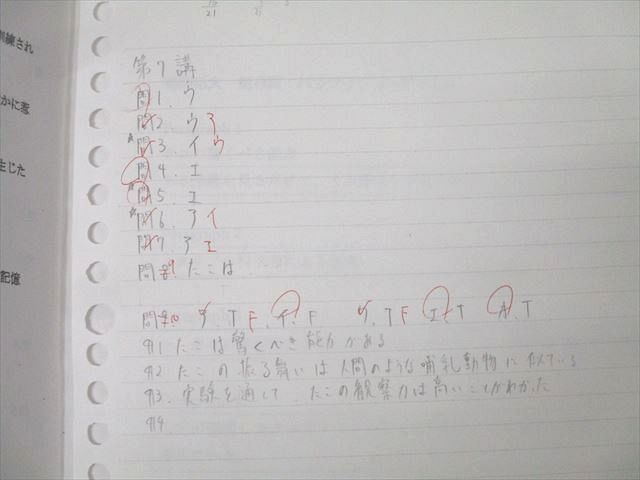 訓練され
かに惹
生じた
記憶
第7講
問1. ウ
問2 ウ ア
問3. イ ウ
問4. エ
問5. エ
問6. ア イ
問7. ア エ
問 9 たこは
問 10 T F イ. F T F エ T A. T
1 たこは驚くべき能力がある
2 たこの振る舞いは人間のような哺乳動物に似ている
3. 実験を通して、たこの観察力は高いことがわかった
4